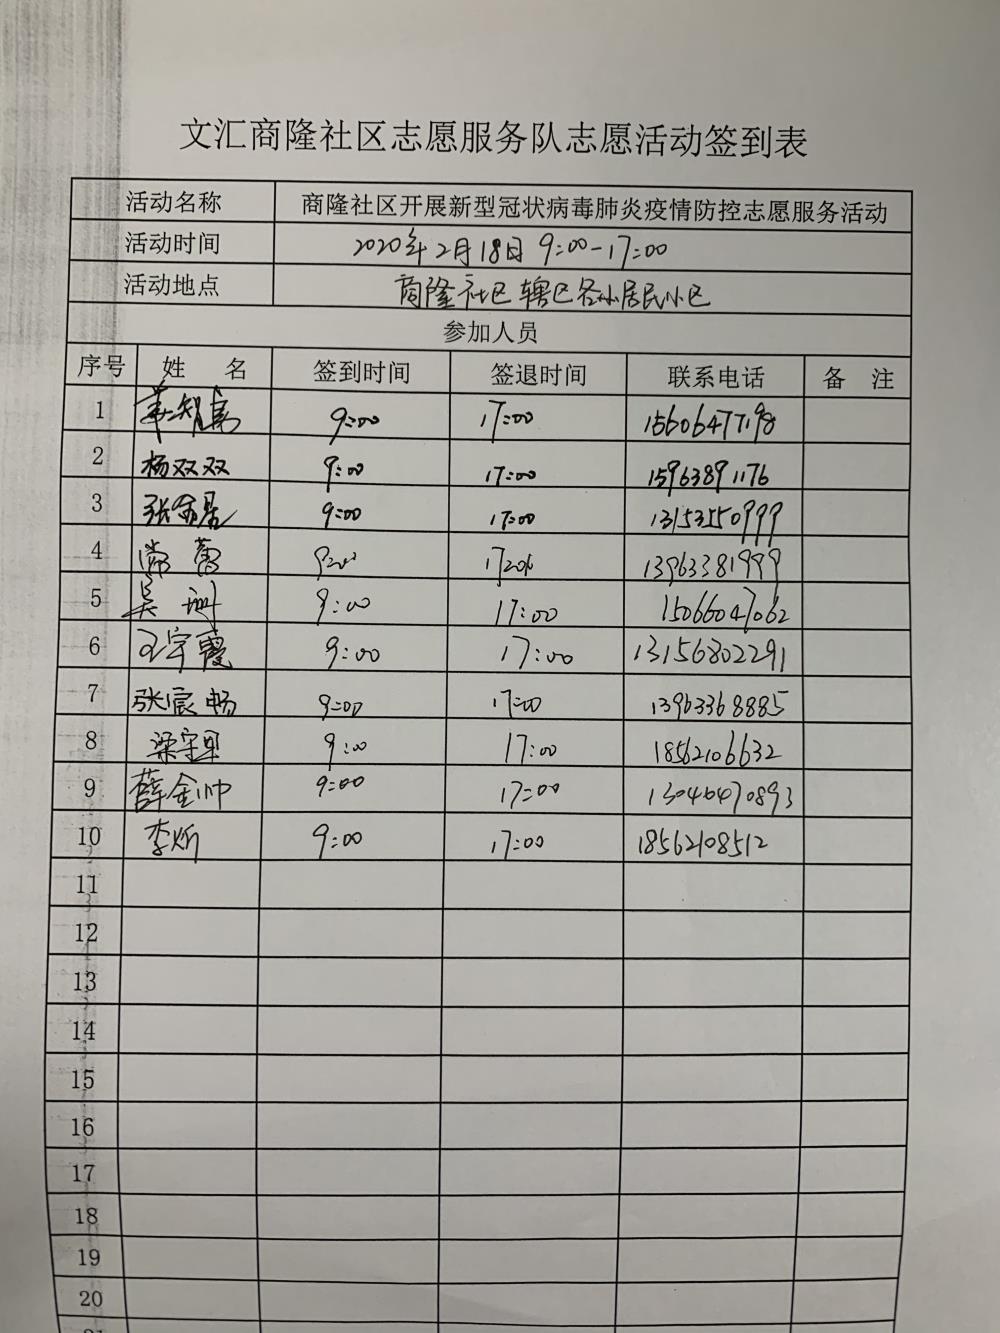 文汇商隆社区志愿服务队志愿活动签到表
活动名称 商隆社区开展新型冠状病毒肺炎疫情防控志愿服务活动
活动时间 2020年2月18日 9:00-17:00
活动地点 商隆社区辖区各小居民小区
参加人员
序号 姓 名 签到时间 签退时间 联系电话 备 注
1 9:00 17:00 15606477198
2 杨双双 9:00 17:00 15963891176
3 9:00 17:00 13153550999
4 常蕾 13963381999
5 吴 9:00 17:00 15066047062
6 王宇霞 9:00 17:00 13156802291
7 张宸畅 9:00 17:00 13963368885
8 梁 9:00 17:00 18562106632
9 薛金帅 9:00 17:00 13046470893
10 李炘 9:00 17:00 18562108512
11
12
13
14
15
16
17
18
19
20
21